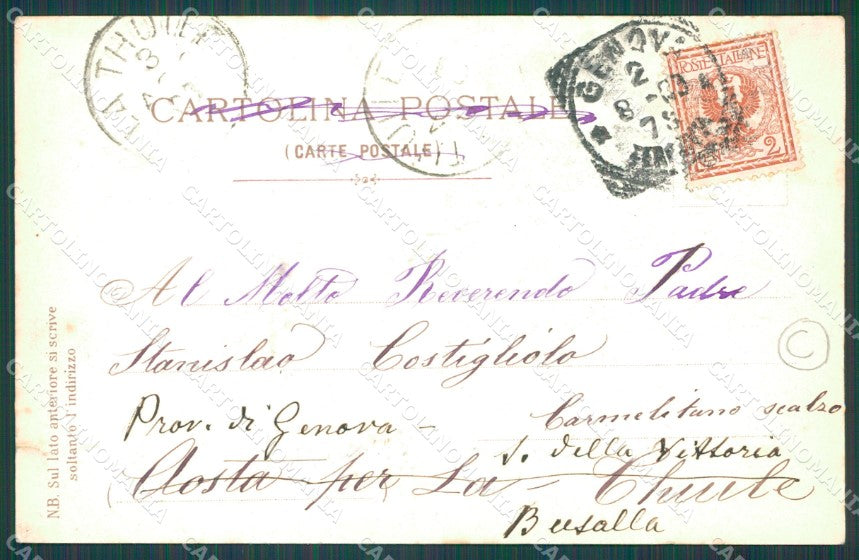 LA THUILE
GENOVA
2
8 - 03
7 S
POSTE ITALIANE
2
CARTOLINA POSTALE
(CARTE POSTALE)
Al Molto Reverendo Padre
Stanislao Costigliolo
Prov. di Genova - Carmelitano scalzo
S. della Vittoria
Aosta per La Thuile
Busalla
N.B. Sul lato anteriore si scrive
soltanto l'indirizzo
C
CARTOLINOMANIA